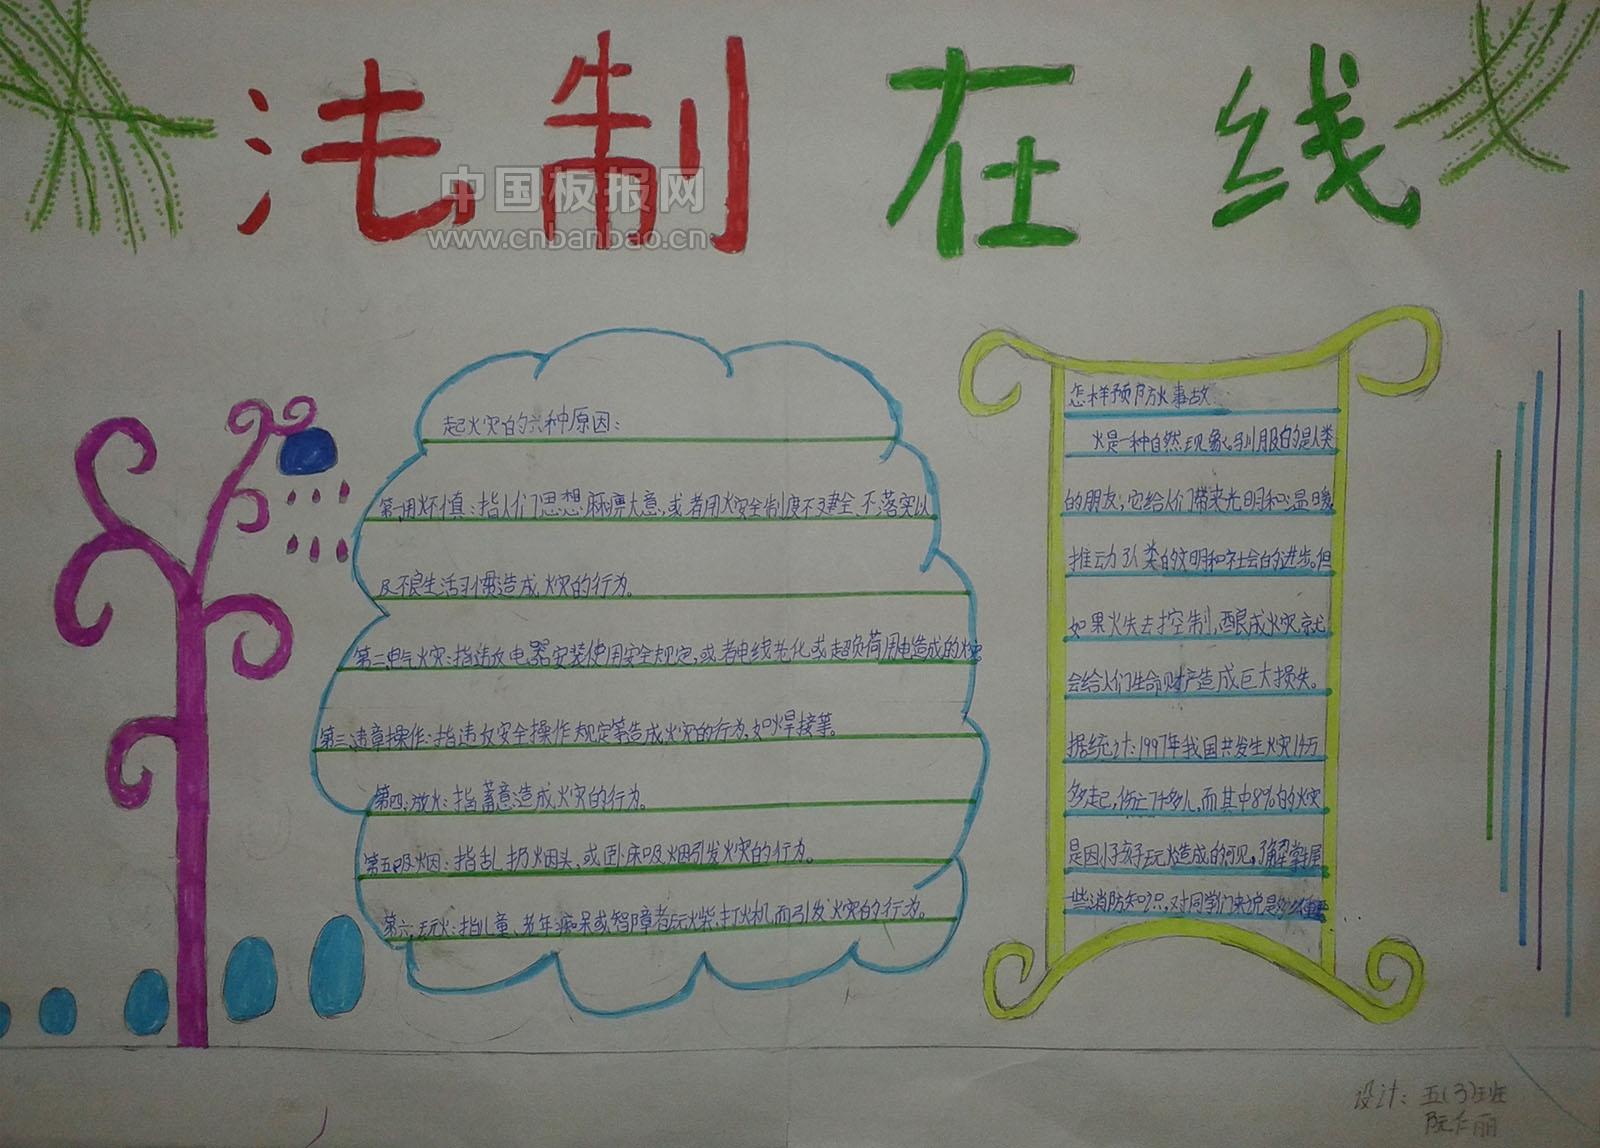 法制在线
中国板报网
www.cnbanbao.cn
起火灾的六种原因:
第一,用火不慎:指人们思想麻痹大意,或者用火安全制度不健全、不落实以
及不良生活习惯造成火灾的行为。
第二,电气火灾:指违反电器安装使用安全规定,或者电线老化或超负荷用电造成的火灾。
第三,违章操作:指违反安全操作规定等造成火灾的行为,如焊接等。
第四,放火:指蓄意造成火灾的行为。
第五,吸烟:指乱扔烟头,或卧床吸烟引发火灾的行为。
第六,玩火:指儿童、老年痴呆或智障者玩火柴、打火机而引发火灾的行为。
怎样预防火事故
火是一种自然现象,驯服的是人类
的朋友,它给人们带来光明和温暖
推动了人类的文明和社会的进步。但
如果火失去控制,酿成火灾,就
会给人们生命财产造成巨大损失。
据统计:1997年我国共发生火灾14万
多起,伤亡7千多人,而其中8%的火灾
是因小孩子玩火造成的可见,了解掌握
一些消防知识,对同学们来说是
设计:五(3)班
阮 丽